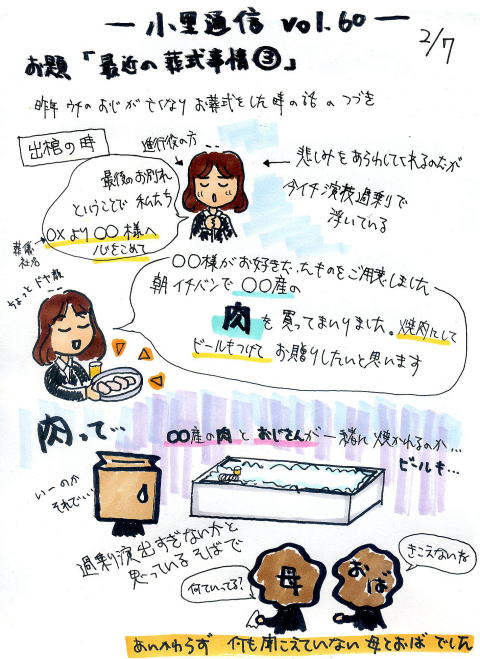 小里通信 vol.60
2/7
お題「最近の葬式事情③」
昨年 ウチの おじが 亡くなり お葬式をした時の話 の つづき
出棺の時
進行役の方
悲しみを あらわしてくれるのだが
今イチ 演技過乗りで
浮いている
最後のお別れ
ということで 私たち
○×より ○○様へ
心をこめて
葬儀社名
○○様がお好きだったものをご用意しました
朝イチバンで ○○産の
肉を買ってまいりました。焼肉にして
ビールもつけて お贈りしたいと思います
ちょっとドヤ顔
肉って…
○○産の肉と おじさんが 一緒に 焼かれるのか…
ビールも…
いーのか
それで…
過乗り演出すぎないかと
思っている そばで
母
何ていってる?
おば
きこえないな
あいかわらず 何も聞こえていない 母とおば でした